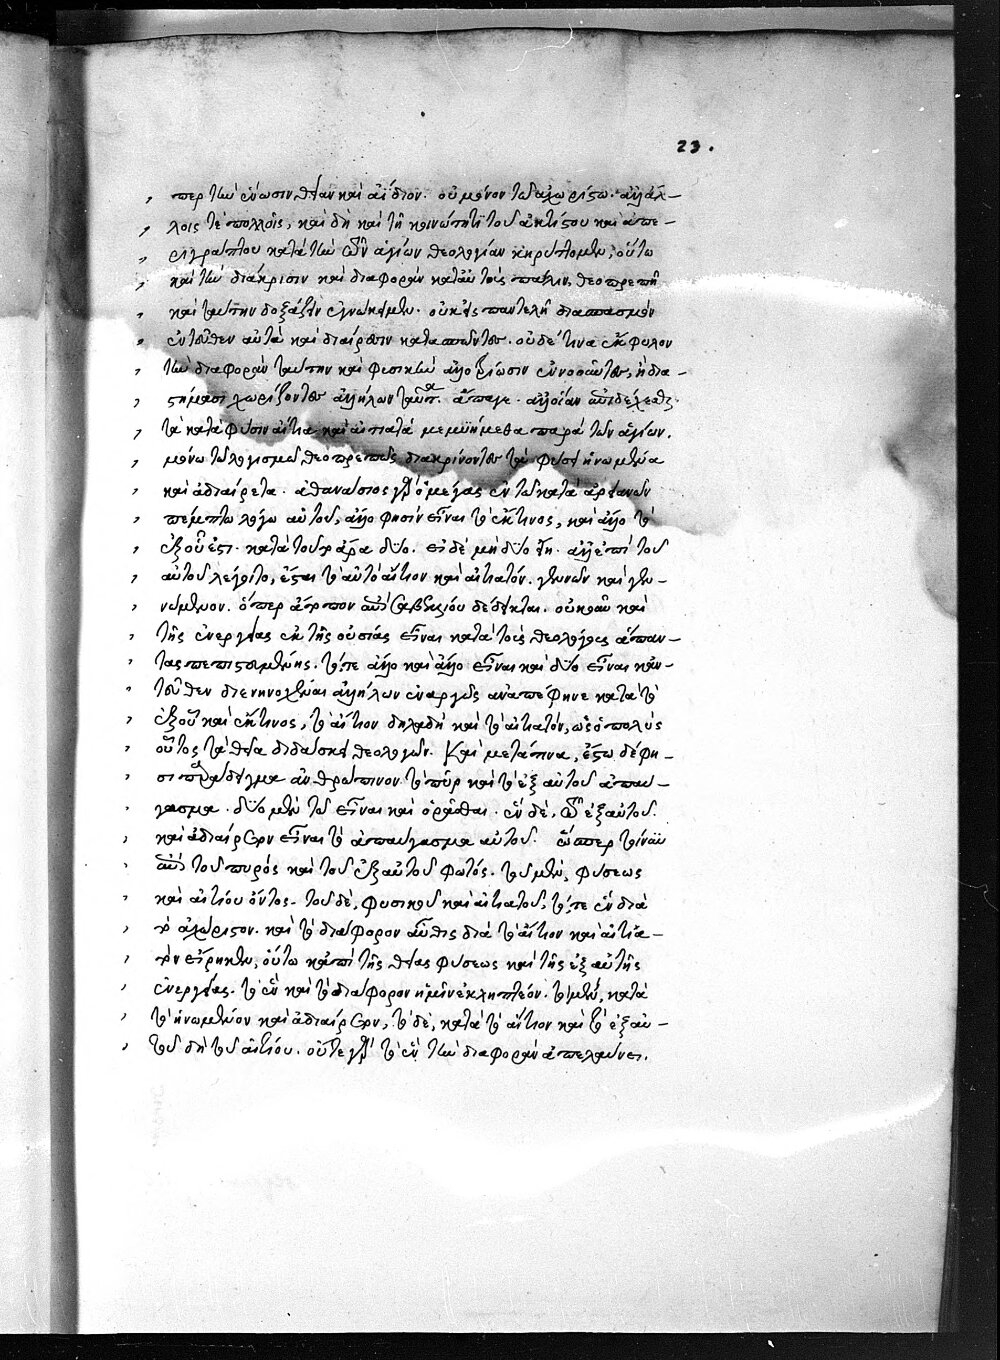 23.
περ τὴν ἕνωσιν θείαν καὶ ἀΐδιον. οὐ μόνον τῷ ἀχωρίστῳ. ἀλλ' ἀλ-
λοις τὲ πολλοῖς, καὶ δὴ καὶ τῇ κοινότητι τοῦ ἀκτίστου καὶ ἀπε-
ριγράπτου κατὰ τὴν τῶν ἁγίων θεολογίαν κηρύττομεν, οὕτω
καὶ τὴν διάκρισιν καὶ διαφορὰν κατ' αὐτοὺς πάλιν, θεοπρεπῆ
καὶ ταύτην δοξάζειν ἐγνώκαμεν. οὐκ εἰς παντελῆ διασπασμὸν
ἐντεῦθεν αὐτὰ καὶ διαίρεσιν κατασπῶντες. οὐδέ τινα ἔκφυλον
τὴν διαφορὰν ταύτην καὶ φυσικὴν ἀλλοτρίωσιν ἐννοοῦντες, ἢ δια-
στήμασι χωρίζοντες ἀλλήλων ταῦτα. ἄπαγε. ἀλλ'
τὰ κατὰ φύσιν αἴτια καὶ αἰτιατὰ μεμυήμεθα παρὰ τῶν ἁγίων.
μόνῳ τῷ λογισμῷ θεοπρεπῶς διακρίνοντες τὰ φύσει ἡνωμένα
καὶ ἀδιαίρετα. ἀθανάσιος γὰρ ὁ μέγας ἐν τῷ κατὰ ἀρειανῶν
πέμπτῳ λόγῳ αὐτοῦ, ἄλλο φησὶν εἶναι τὸ ἔκ τινος, καὶ ἄλλο τὸ
ἐξ οὗ ἐστι. κατὰ τοῦτο ἄρα δύο. εἰ δὲ μὴ δύο εἴη. ἀλλ' ἐπὶ τοῦ
αὐτοῦ λέγοιτο, ἔσται τὸ αὐτὸ αἴτιον καὶ αἰτιατόν. γεννῶν καὶ γεν-
νώμενον. ὅπερ ἄτοπον ἐπὶ σαβελλίου δέδεικται. οὐκοῦν καὶ
τῆς ἐνεργείας ἐκ τῆς οὐσίας εἶναι κατὰ τοὺς θεολόγους ἅπαν-
τας πεπιστευμένης. τό, τε ἄλλο καὶ ἄλλο εἶναι καὶ δύο εἶναι κἀν-
τεῦθεν διενηνοχέναι ἀλλήλων ἐναργῶς ἀναπέφηνε κατὰ τὸ
ἐξ οὗ καὶ ἔκ τινος, τὸ αἴτιον δηλαδὴ καὶ τὸ αἰτιατόν, ὡς ὁ πολὺς
οὗτος τὰ θεῖα διδάσκει θεολογῶν. Καὶ μετά τινα, ἔστω δέ φη-
σι παράδειγμα ἀνθρώπινον τὸ πῦρ καὶ τὸ ἐξ αὐτοῦ ἀπαύ-
γασμα. δύο μὲν τῷ εἶναι καὶ ὁρᾶσθαι. ἓν δὲ, τῷ ἐξ αὐτοῦ
καὶ ἀδιαίρετον εἶναι τὸ ἀπαύγασμα αὐτοῦ. ὥσπερ τοίνυν
ἐπὶ τοῦ πυρὸς καὶ τοῦ ἐξ αὐτοῦ φωτός. τοῦ μὲν, φύσεως
καὶ αἰτίου ὄντος. τοῦ δὲ, φυσικοῦ καὶ αἰτιατοῦ, τό, τε ἓν διὰ
τὸ ἀχώριστον. καὶ τὸ διάφορον αὖθις διὰ τὸ αἴτιον καὶ αἰτια-
τὸν εἴρηται, οὕτω κἀπὶ τῆς θείας φύσεως καὶ τῆς ἐξ αὐτῆς
ἐνεργείας. τὸ ἓν καὶ τὸ διάφορον ἡμῖν ἐκληπτέον. τὸ μὲν, κατὰ
τὸ ἡνωμένον καὶ ἀδιαίρετον, τὸ δὲ, κατὰ τὸ αἴτιον καὶ τὸ ἐξ αὐ-
τοῦ δὴ τοῦ αἰτίου. οὔτε γὰρ τὸ ἓν τὴν διαφορὰν ἀπελαύνει.